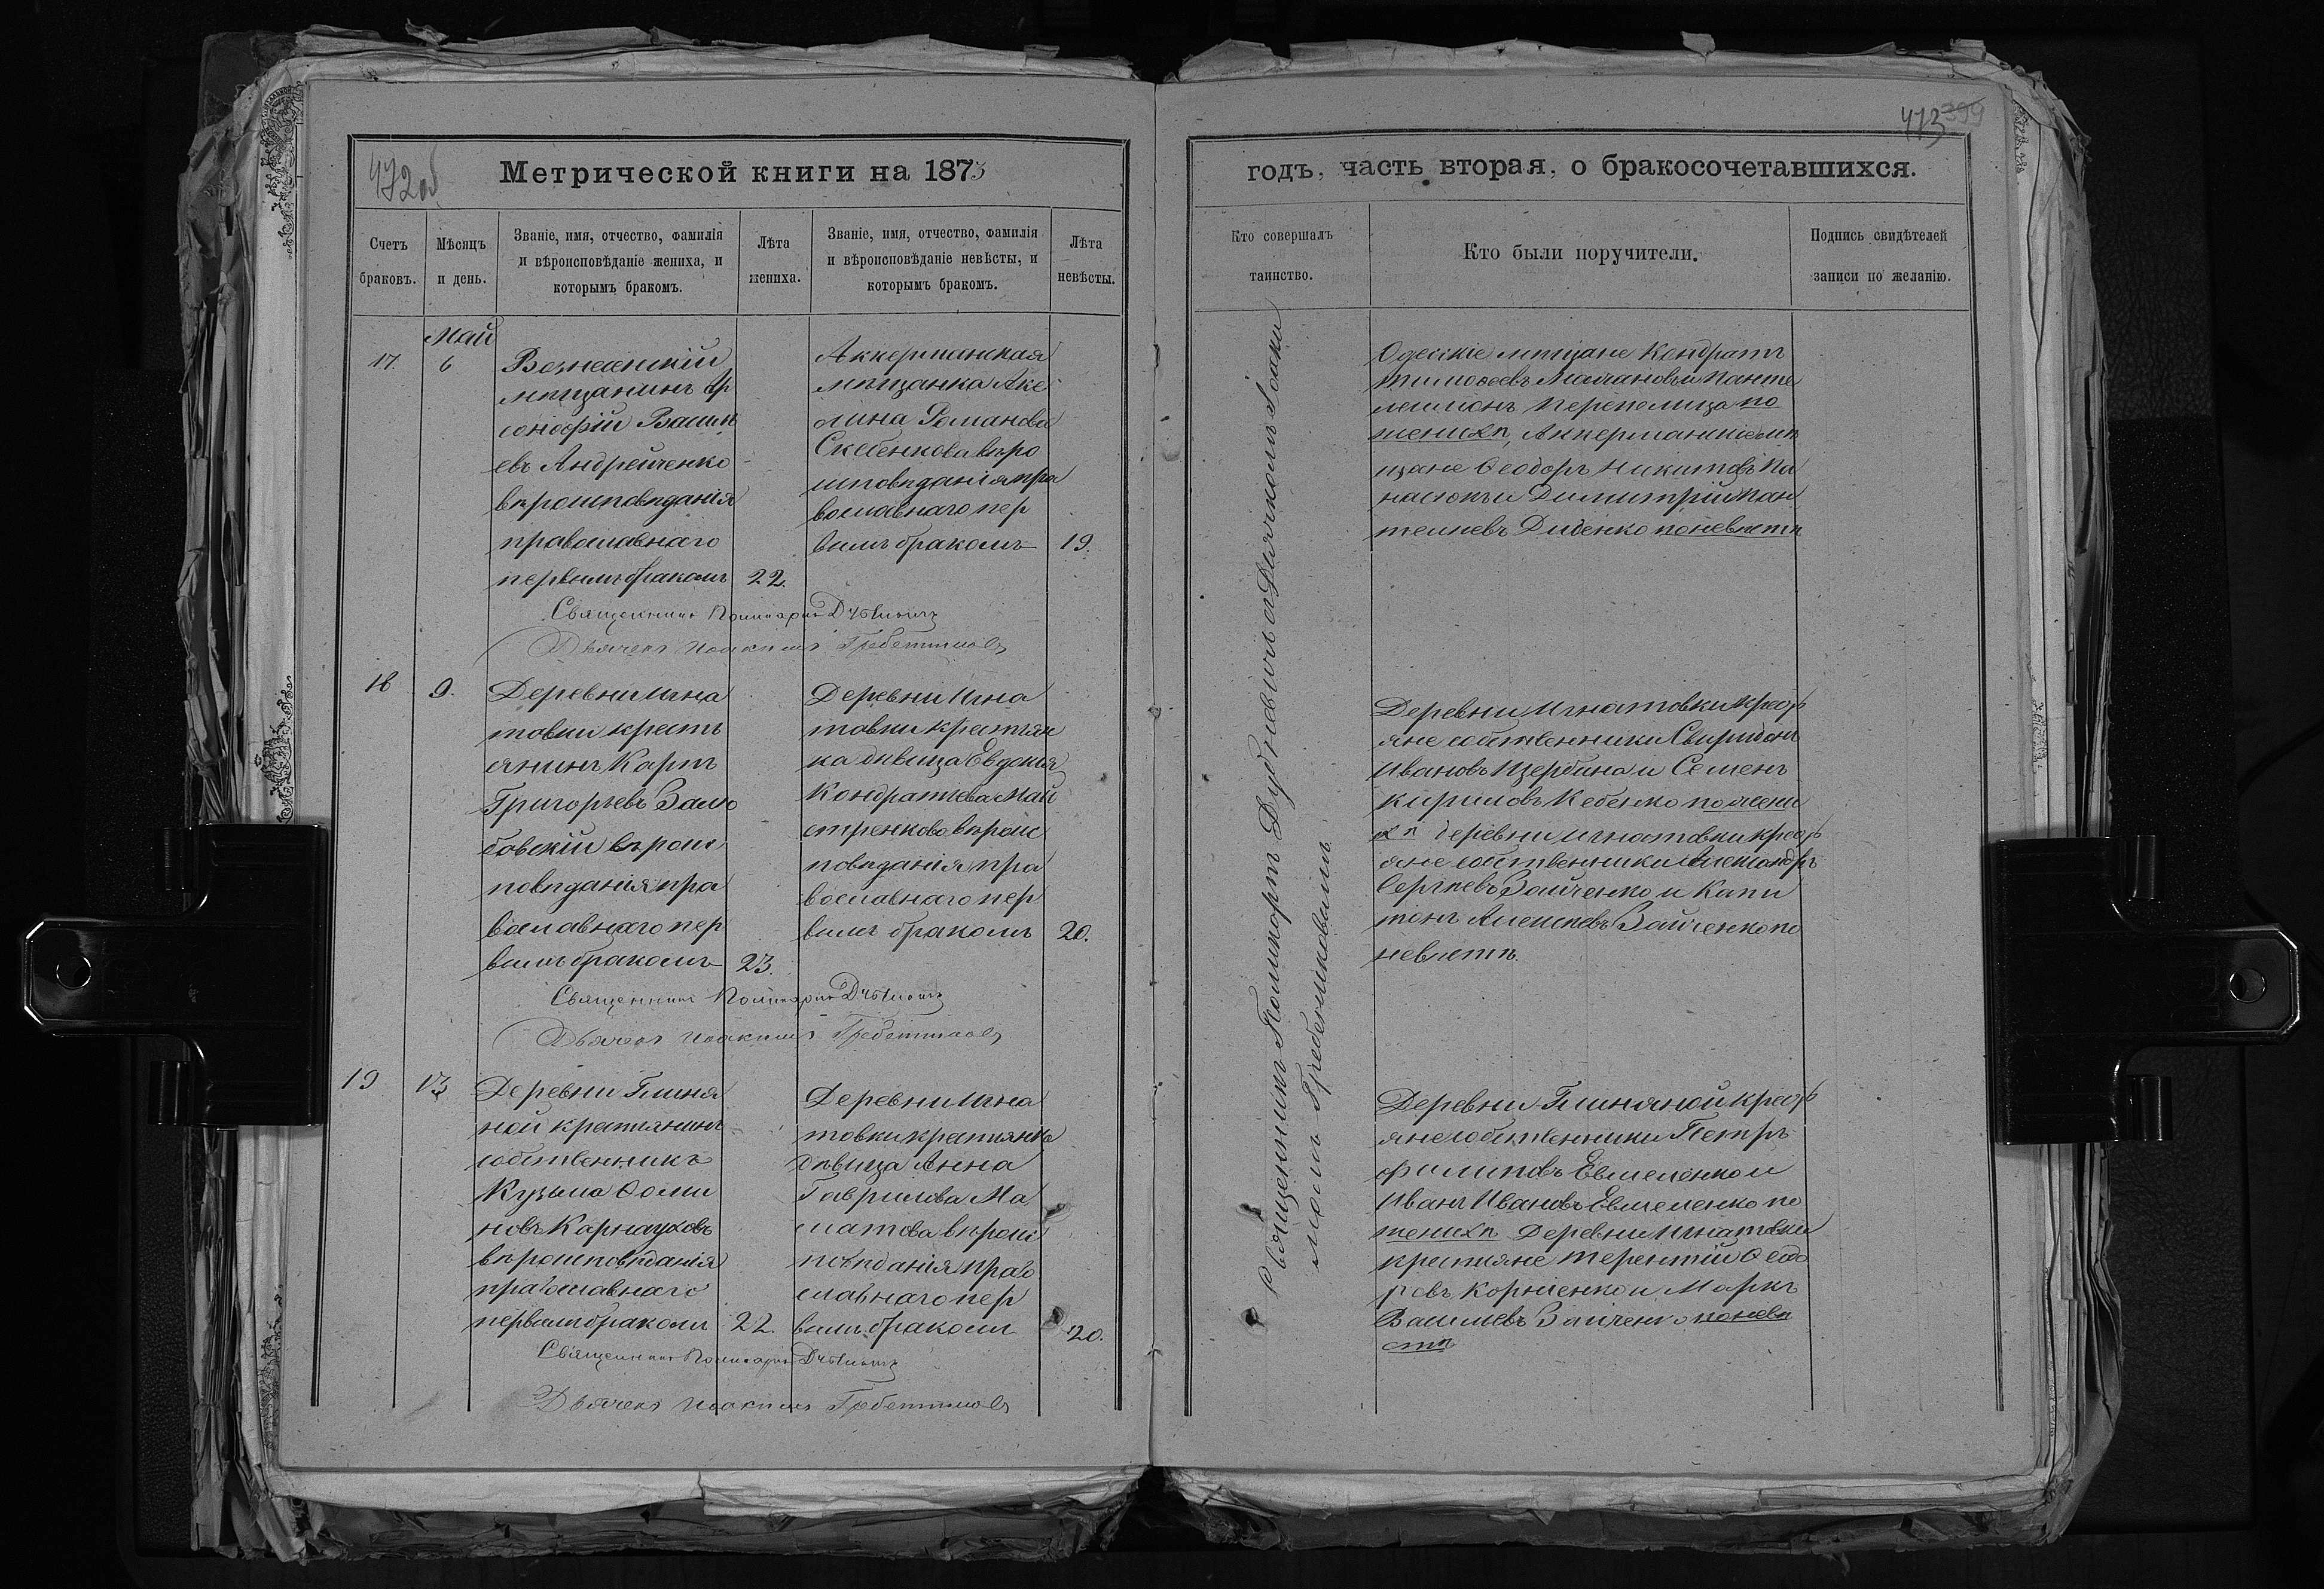 472об
Метрической книги на 1873
Счетъ браковъ.
Мѣсяцъ и день.
Званіе, имя, отчество, фамилія и вѣроисповѣданіе жениха, и которымъ бракомъ.
Лѣта жениха.
Званіе, имя, отчество, фамилія и вѣроисповѣданіе невѣсты, и которымъ бракомъ.
Лѣта невѣсты.
Май
17. 6
Вознесенскій
мѣщанинъ
Василь
евъ Андрейченко
вѣроисповѣданія
православнаго
первымъ бракомъ 22.
Аккерманская
мѣщанка Аке
лина Романова
Скебенкова вѣро
исповѣданія пра
вославнаго пер
вымъ бракомъ 19.
Священникъ Поликарпъ
Дьячекъ Иоакимъ
18 9.
Деревни Игна
товки кресть
янинъ Карпъ
Григорьевъ Залю
бовскій вѣроис
повѣданія пра
вославнаго пер
вымъ бракомъ 23.
Деревни Игна
товки крестьян
ка дѣвица Евдокия
Кондратьева Май
стренкова вѣроис
повѣданія пра
вославнаго пер
вымъ бракомъ 20.
Священникъ Поликарпъ
Дьячекъ Иоакимъ
19 13
Деревни Глиня
ной крестянинъ
собственникъ
Кузьма Ѳоми
новъ Карнауховъ
вѣроисповѣданія
православнаго
первымъ бракомъ 22.
Деревни Игна
товки крестянка
дѣвица Анна
Гаврилова Ма
матова вѣроис
повѣданія право
славнаго пер
вымъ бракомъ 20.
Священникъ Поликарпъ
Дьячекъ Иоакимъ
413 399
годъ, часть вторая, о бракосочетавшихся.
Кто совершалъ таинство.
Кто были поручители.
Подпись свидѣтелей записи по желанію.
Священникъ Поликарпъ Дубневичъ съ Дьячкомъ Іоаки
момъ Гребенниковымъ
Одесскіе мѣщане Кондратъ
Тимоѳеевъ и Панте
леимонъ Перепелица по
женихѣ, Аккерманскіе мѣ
щане Ѳеодоръ Никитовъ Па
насюкъ и Димитрій Пан
телѣевъ Диденко по невѣстѣ
Деревни Игнатовки крест
яне собственники Свиридонъ
Ивановъ Щербина и Семенъ
Кириловъ Кебенко по жени
хѣ деревни Игнатовки крест
яне собственники Александръ
Сергѣевъ Зайченко и Капи
тонъ Алексѣевъ Зайченко по
невѣстѣ.
Деревни Глиняной крест
яне собственники Петръ
Филиповъ Евмененко и
Иванъ Ивановъ Евмененко по
женихѣ Деревни Игнатовки
крестяне Терентій Ѳеодо
ровъ Корниенко и Маркъ
Васильевъ Зайченко по невѣ
стѣ